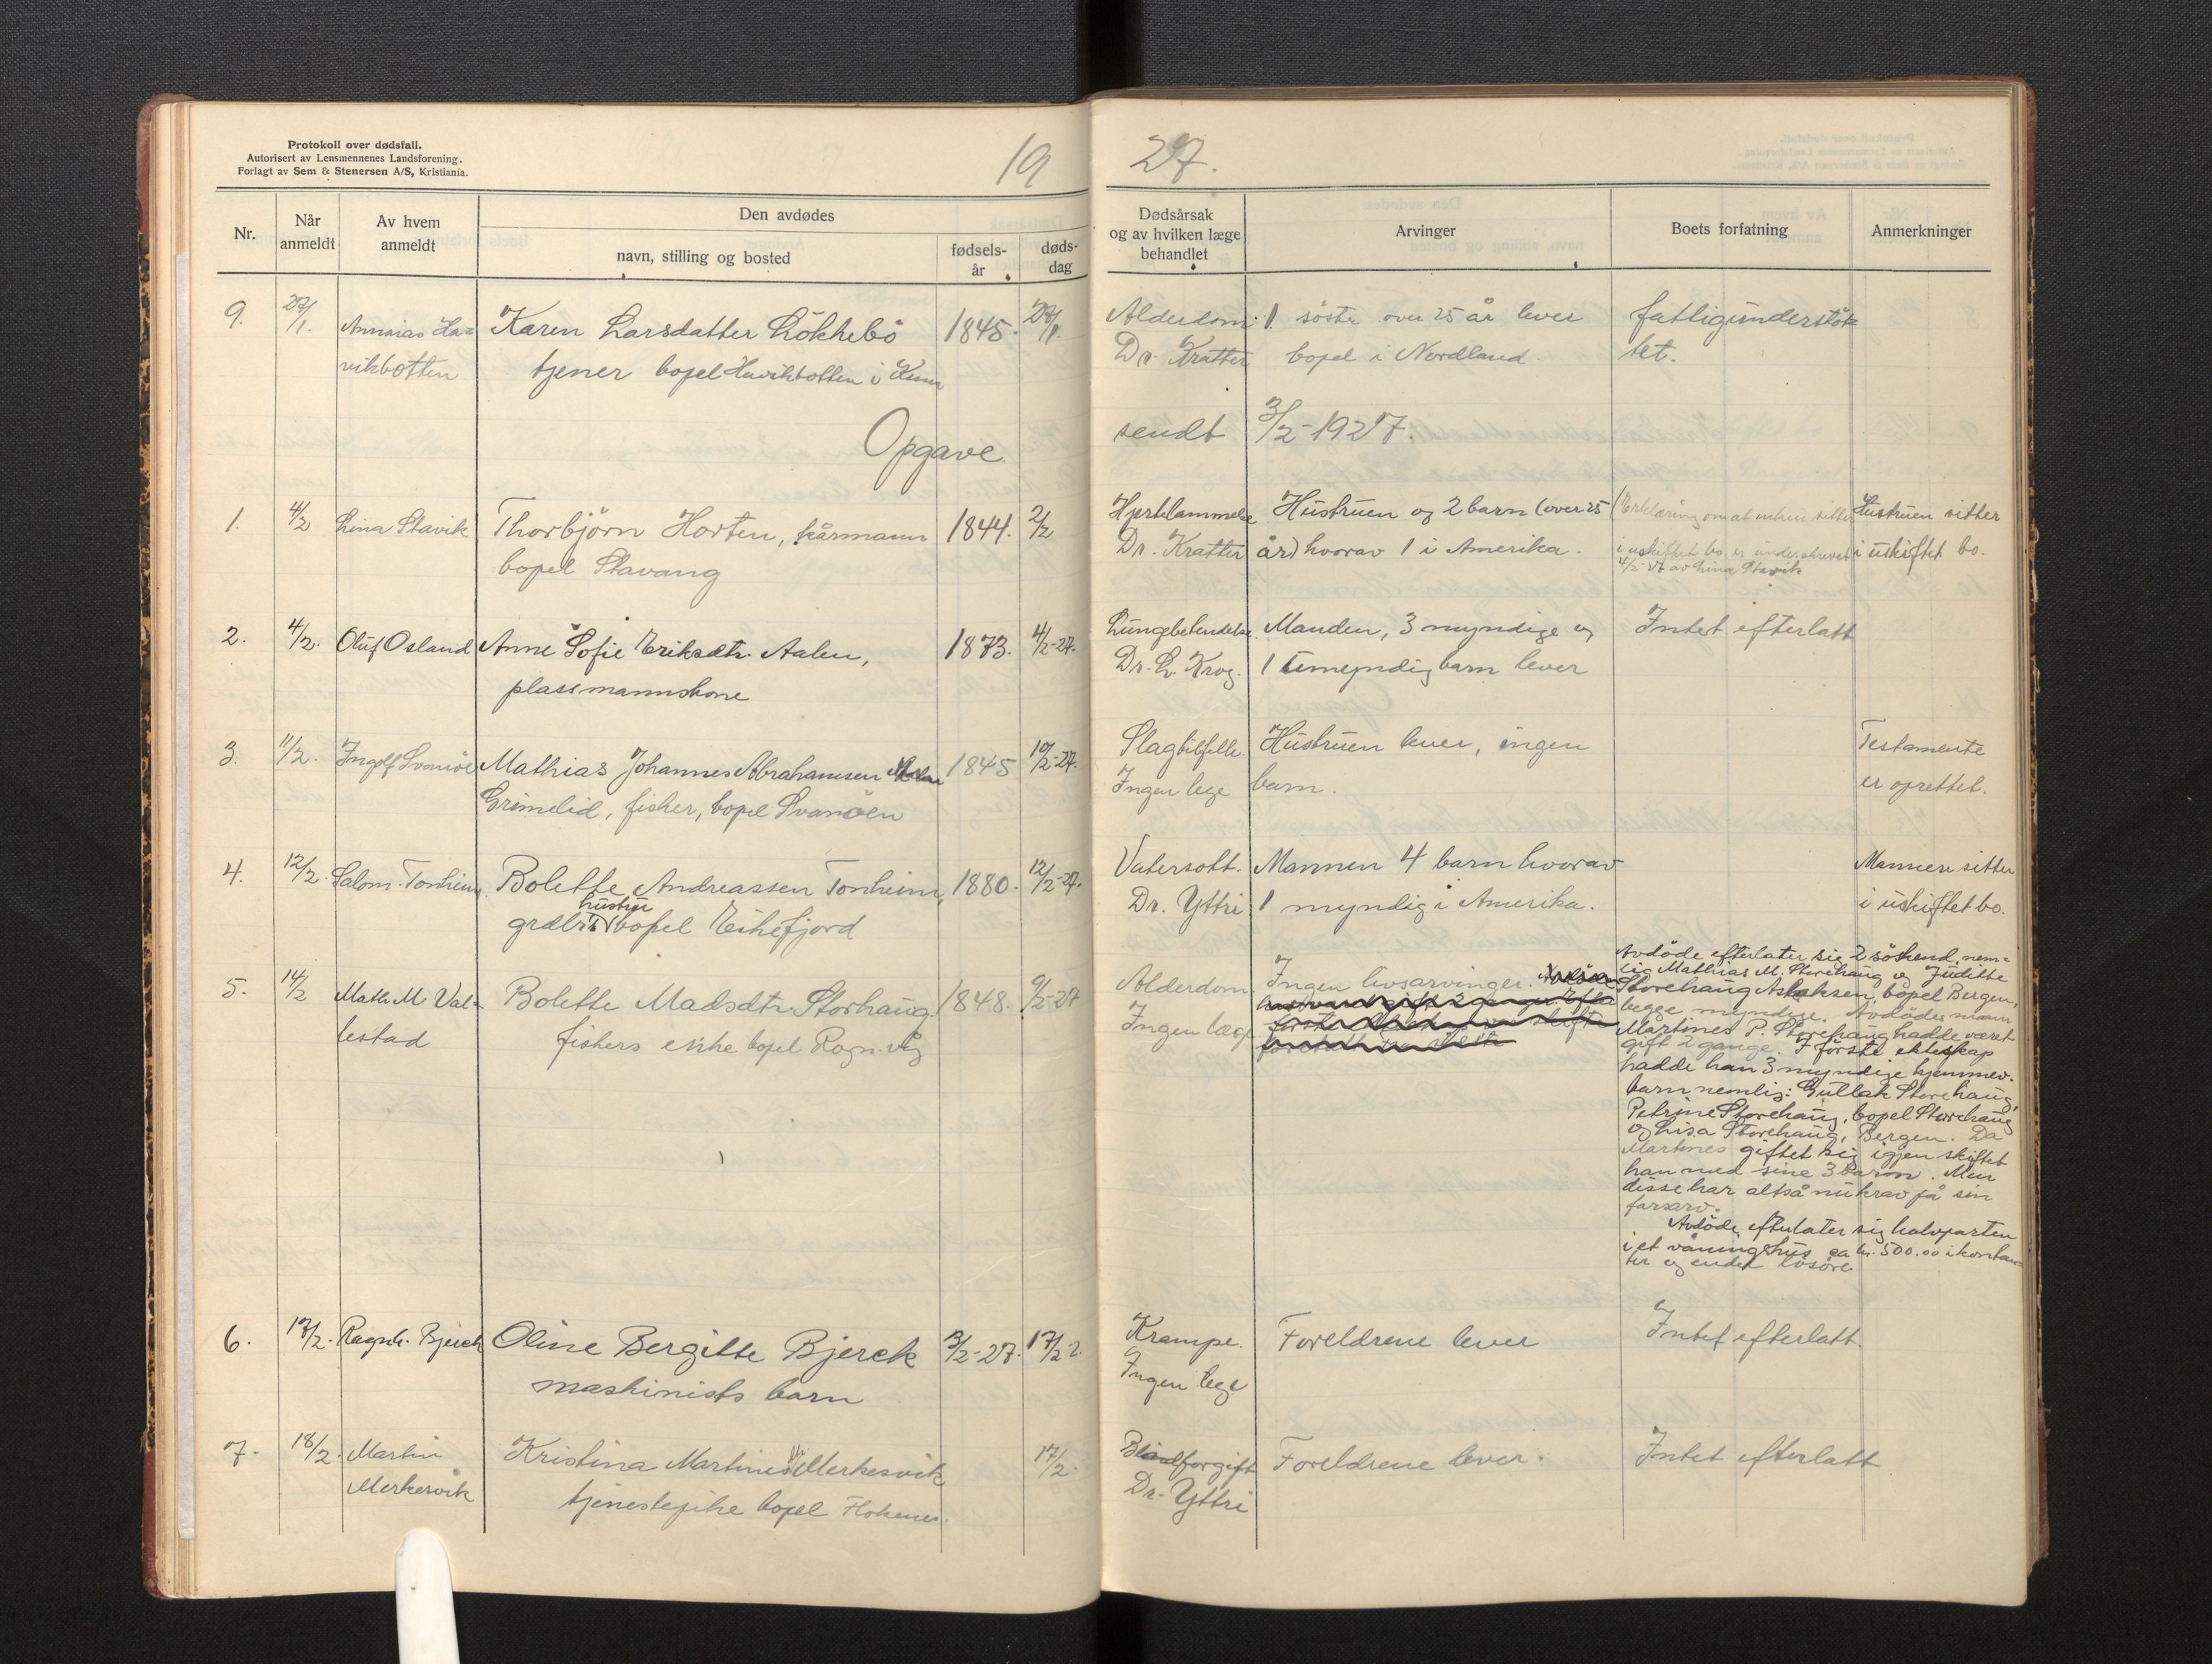 Protokoll over dødsfall.
Autorisert av Lensmennenes Landsforening.
Forlagt av Sem & Stenersen A/S, Kristiania.
19 27.
Nr.
Når anmeldt
Av hvem anmeldt
Den avdødes
navn, stilling og bosted
fødsels-år
døds-dag
Dødsårsak og av hvilken læge behandlet
Arvinger
Boets forfatning
Anmerkninger
9. 27/1. Karen Larsdatter Lökkebö 1845. 27/1. Alderdom. 1 söster over 25 år lever fattigunderstöt-
vikbotten tjener bopel Havikbotten i Kinn Dr. Kratter bopel i Nordland tet.
Opgave sendt 3/2-1927.
1. 4/2 Lina Stavik Thorbjörn Horten, kårmann 1844. 2/2 Hjertelammelse Hustruen og 2 barn (over 25 (Erklæring om at enken sitter Hustruen sitter
bopel Stavang Dr. Kratter år) hvorav 1 i Amerika. i uskiftet bo er underskrevet i uskiftet bo.
4/2-27 av Lina Stavik
2. 4/2. Oluf Osland Anne Sofie Eriksdtr. Aalen, 1873. 4/2-27. Lungebetendelse Manden, 3 myndige og Intet efterlatt
plassmannskone Dr. L. Krog. 1 umyndig barn lever
3. 11/2. Ingolf Svanöe Mathias Johannes Abrahamsen 1845 10/2-27. Slagtilfelle. Hustruen lever, ingen Testamente
Grimelid, fisker, bopel Svanöen Ingen lege barn. er oprettet.
4. 12/2. Salom. Tonheim Bolette Andreassen Tonheim, 1880. 12/2-27. Vatersott. Mannen 4 barn hvorav Mannen sitter
hustru
bopel Eikefjord Dr. Yttri 1 myndig i Amerika. i uskiftet bo.
5. 14/2 Math. M. Val- Bolette Madsdtr. Storhaug. 1848. 9/2-27 Alderdom Ingen livsarvinger.
lestad fiskers enke bopel Rognvåg Ingen læge
Avdöde efterlater sig 2 söskend, nem-
lig Mathias M. Storehaug og Juditte
Storehaug Aslaksen, bopel Bergen,
begge myndige. Avdödes mann
Martines P. Storehaug hadde været
gift 2 gange. I förste ekteskap
hadde han 3 myndige hjemmev.
barn nemlig: Gullak Storehaug,
Petrine Storehaug, bopel Storehaug
og Lisa Storehaug, Bergen. Da
Martines giftet sig igjen skiftet
han med sine 3 barn. Men
disse har altså nu krav på sin
farsarv.
Avdöde efterlater sig halvparten
i et våningshus, ca kr. 500.00 i kontan-
ter og endel lösöre
6. 17/2. Ragnh. Bjerck Oline Bergitte Bjerck 3/2-27. 17/2 Krampe. Foreldrene lever Intet efterlatt.
maskinists barn Ingen lege
7. 18/2. Martin Kristina Martines Merkesvik 17/2. Foreldrene lever. Intet efterlatt
Merkesvik tjenestepike bopel Dr. Yttri